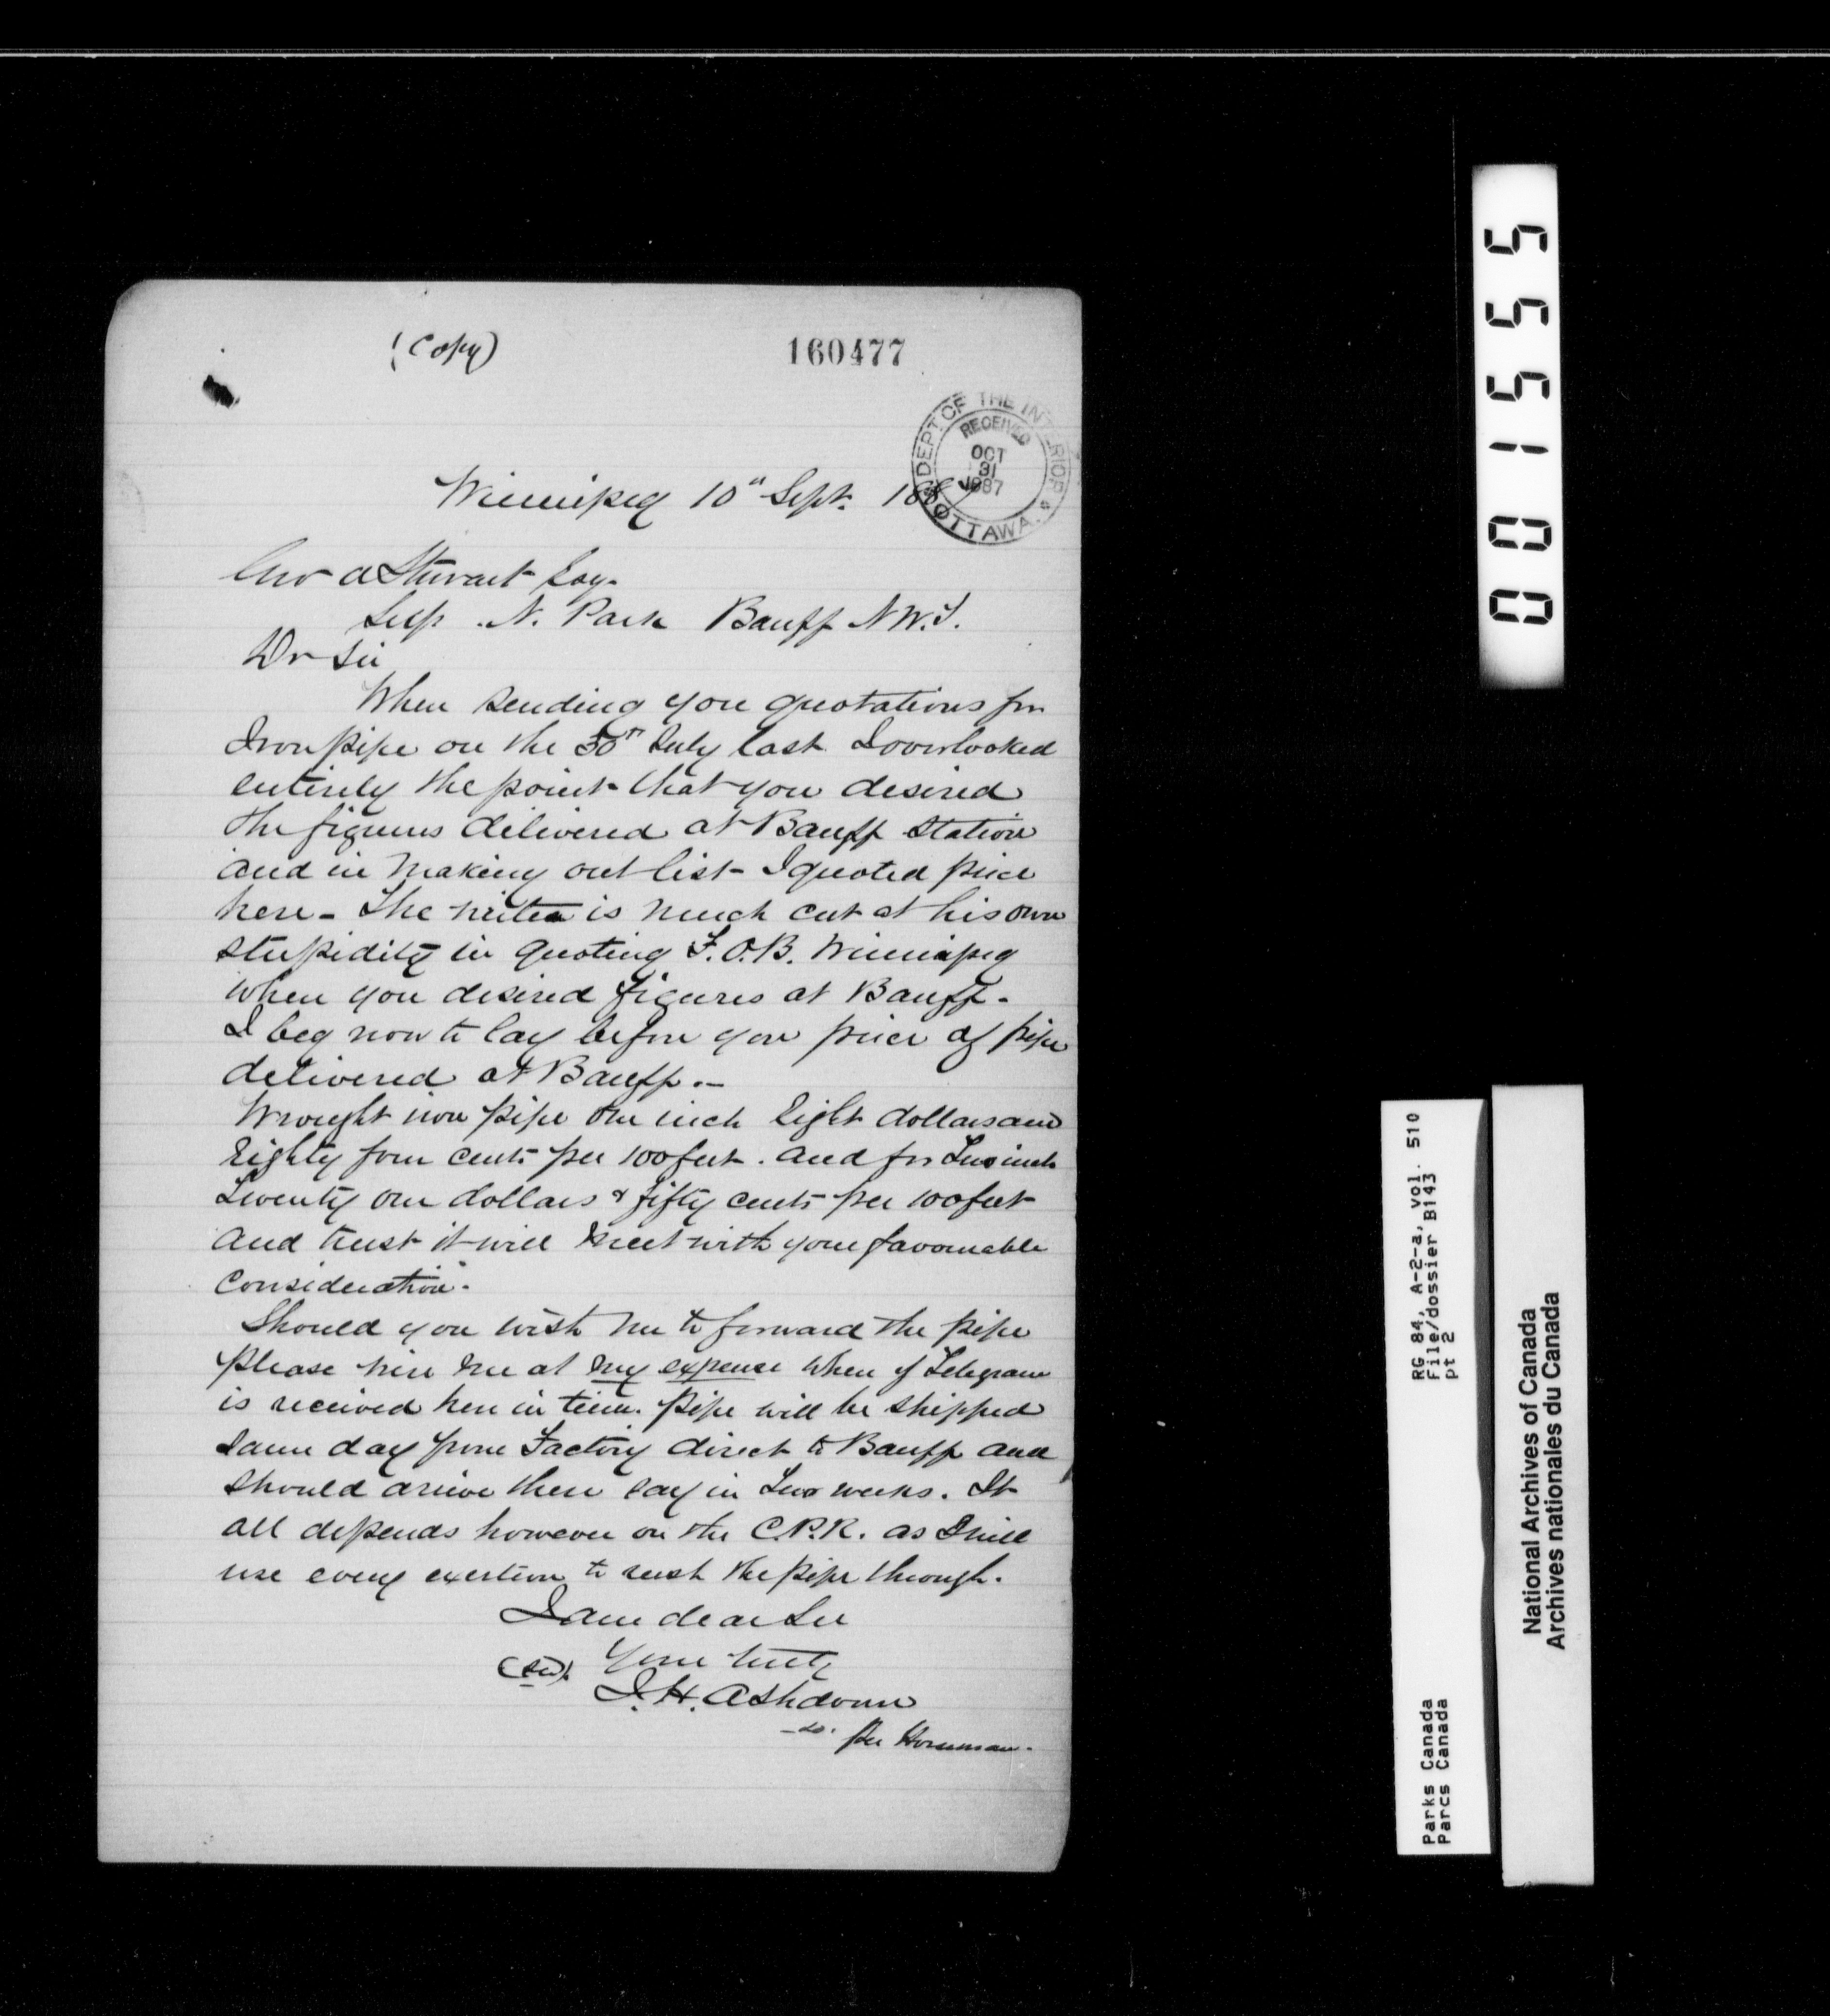 (Copy)
160477
DEPT. OF THE INTERIOR
RECEIVED
OCT
31
1887
OTTAWA
Winnipeg 10th Sept. 188
Geo A Stewart Esq.
Sup. N. Park Banff N.W.T.
Dr Sir
When sending you quotations for
Iron pipe on the 30th July last I overlooked
entirely the point that you desired
the figures delivered at Banff Station
and in making out list I quoted price
here - The writer is much cut at his own
stupidity in quoting F.O.B. Winnipeg
when you desired figures at Banff.
I beg now to lay before you price of pipe
delivered at Banff. -
Wrought iron pipe one inch Eight dollars and
Eighty four cents per 100 feet. and for Two inch
Twenty one dollars & fifty cents per 100 feet
and trust it will meet with your favourable
consideration.
Should you wish me to forward the pipe
please wire me at my expense when if Telegram
is received here in time. pipe will be shipped
same day from Factory direct to Banff and
should arrive there say in Two weeks. It
all depends however on the C.P.R. as I will
use every exertion to rush the pipe through.
I am dear Sir
Your truly
(sd). J. H. Ashdown
per Horseman.
001555
RG 84, A-2-a, vol. 510
File/dossier B143
pt 2
Parks Canada
Parcs Canada
National Archives of Canada
Archives nationales du Canada